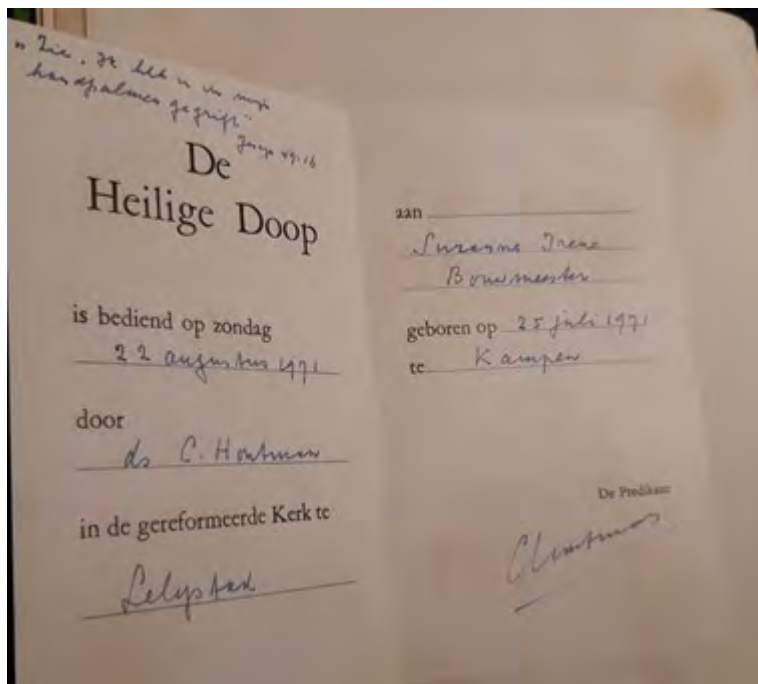 „Zie, Ik heb u in mijn
handpalmen gegrift"
Jesaja 49:16
De
Heilige Doop
is bediend op zondag
22 augustus 1971
door
ds C. Houtman
in de gereformeerde Kerk te
Lelystad
aan
Suzanne Irene
Bouwmeester
geboren op 25 juli 1971
te Kampen
De Predikant
CHoutman